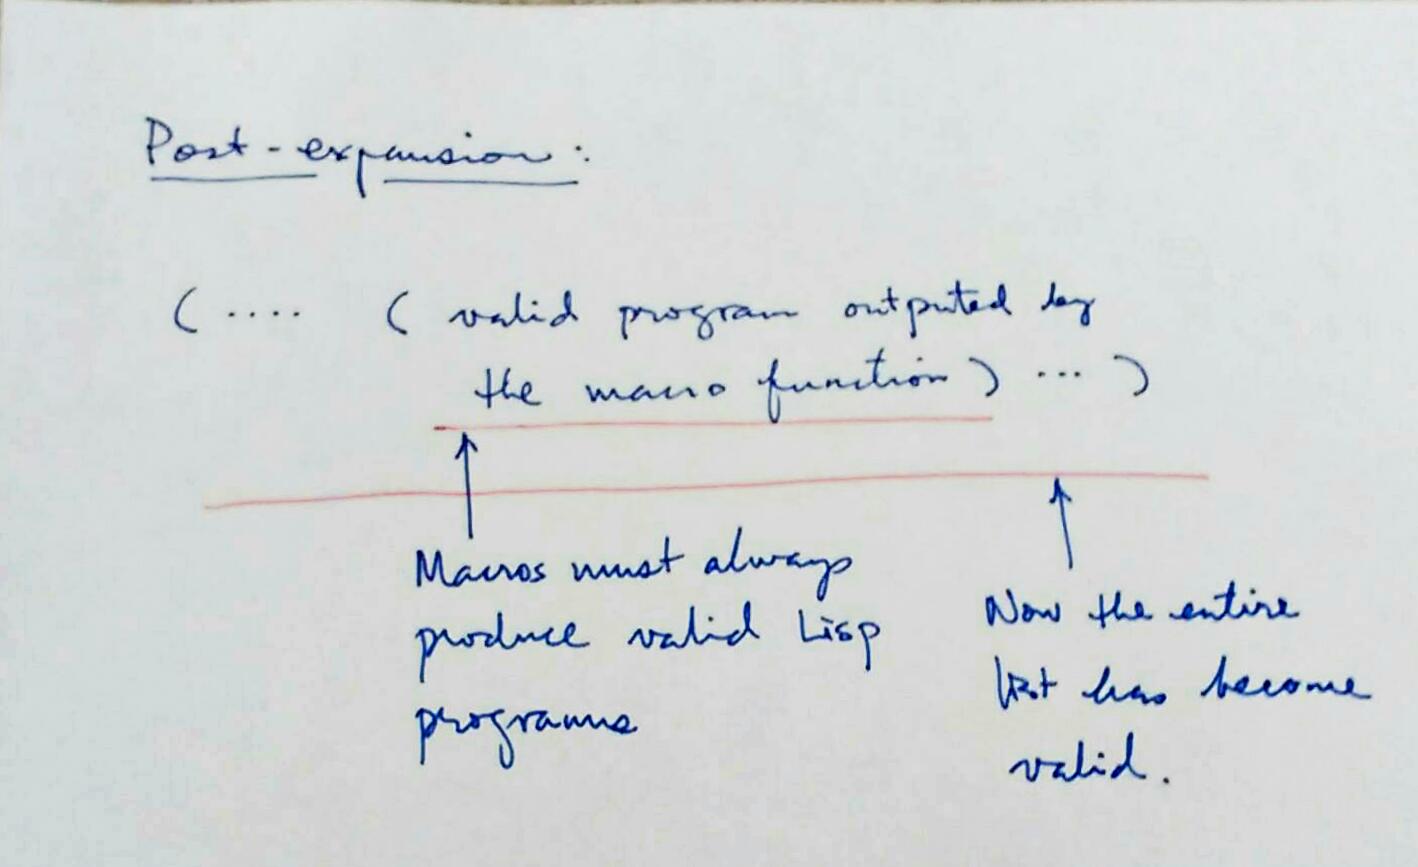 Post-expansion:
( .... ( valid program outputed by
the macro function) ... )
Macros must always
produce valid Lisp
programs
Now the entire
list has become
valid.